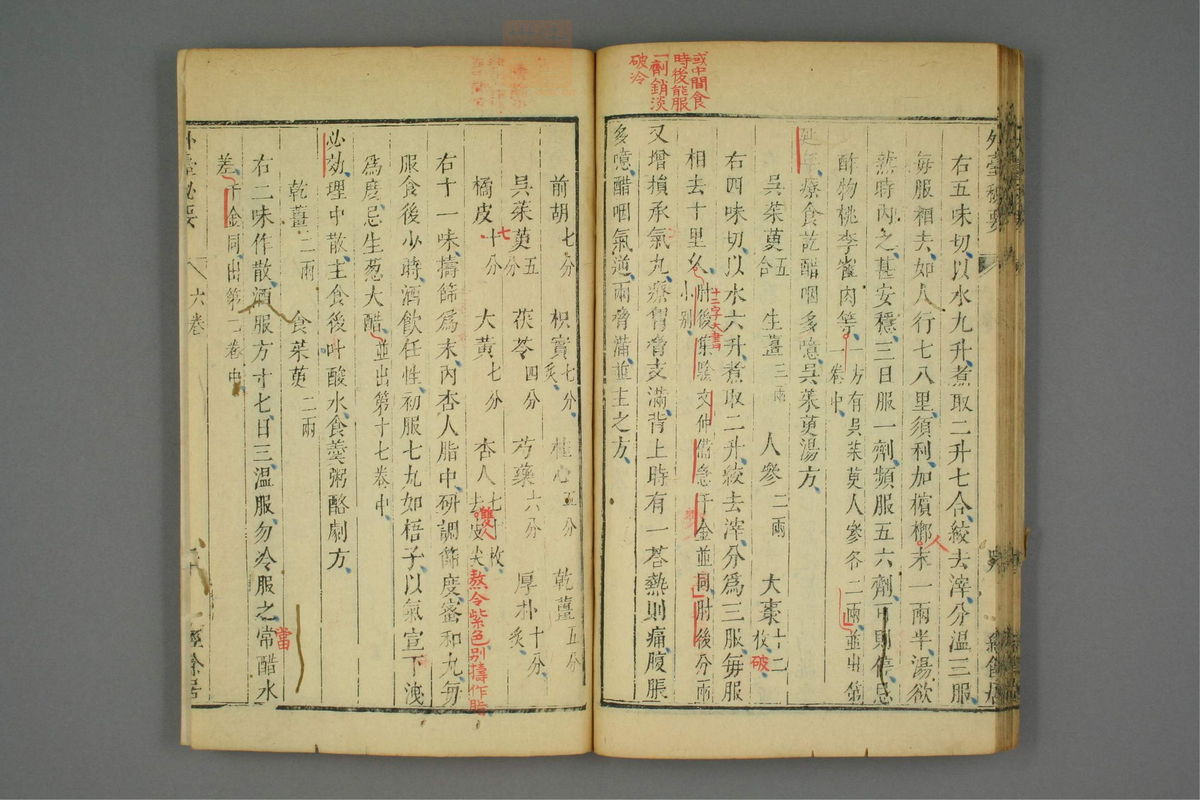 或中間食
時後能服
一劑銷淡
破冷
外臺秘要
右五味切以水九升煮取二升七合絞去滓分溫三服
每服相去如人行七八里須利加檳榔末一兩半湯欲
熟時內之甚安穩三日服一劑頻服五六劑可則停忌
酢物桃李雀肉等
一方有吳茱萸人參各二兩並出第
一卷中
延年療食訖醋咽多噫吳茱萸湯方
吳茱萸五合 生薑三兩 人參二兩 大棗十二枚
破
右四味切以水六升煮取二升絞去滓分為三服每服
相去十里久
十二字大書
肘後集驗文仲備急千金並同肘後分兩
小別
又增損承氣丸療胃脅支滿背上時有一答熱則痛腹脹
多噫醋咽氣逆兩脅滿並主之方
前胡七分 枳實七分炙 桂心五分 乾薑五分
吳茱萸五分 茯苓四分 芍藥六分 厚朴十分炙
橘皮十分 大黃七分 杏人七枚去皮尖
七
雙
熬令紫色別擣作脂
右十一味擣篩為末內杏人脂中研調篩度蜜和丸每
服食後少時酒飲任性初服七丸如梧子以氣宣下洩
為度忌生葱大醋
並出第十七卷中
必效理中散主食後吐酸水食羹粥酪劇方
乾薑二兩 食茱萸二兩
右二味作散酒服方寸七日三溫服勿冷服之常醋水
當
差
千金同出第二卷中
外臺秘要
六卷
經餘居